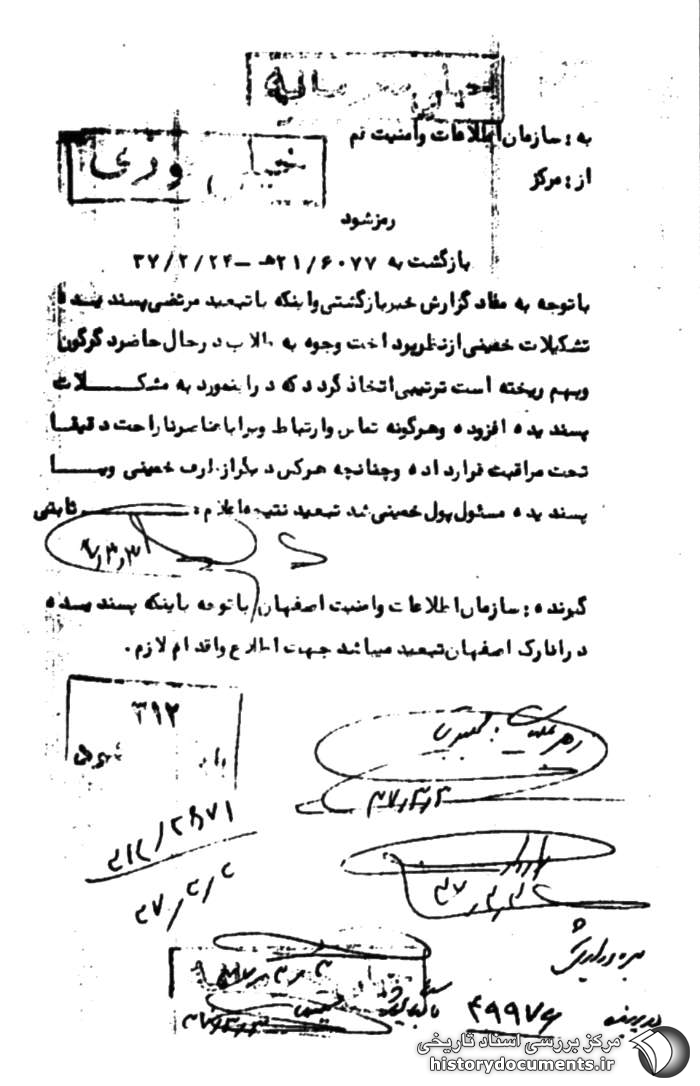 خیلی محرمانه
به : سازمان اطلاعات وامنیت قم
خیلی فوری
از : مرکز
رمزشود
بازگشت به ۲۱/۶۰۷۷ هـ ــ ۳۷/۲/۲۴
باتوجه به مفاد گزارش خبربازگشتی واینکه با تبعید مرتضی پسند یده
تشکیلات خمینی ازنظرپرداخت وجوه به طلاب درحال حاضرد گرگون
وبهم ریخته است ترتیبی اتخاذ گردد که دراینمورد به مشکــــلات
پسند یده افزوده وهرگونه تماس وارتباط ویرا باعناصرناراحت دقیقا
تحت مراقبت قرارداده وچنانچه هرکس دیگرازطرف خمینی ویـــا
پسند یده مسئول پول خمینی شد تبعید نتیجه اعلام : ثابتی
گیرنده : سازمان اطلاعات وامنیت اصفهان باتوجه باینکه پسند یــده
درانارک اصفهان تبعید میباشد جهت اطلاع واقدام لازم .
۳۱۲
رهبر عملیات :
۳۷/۳/۲
۳۱۲/۲۸۷۱
۳۷/۳/۲
بهره برداری شد
در پرونده ۴۹۹۷۶
بایگانی شود
مرکز بررسی اسناد تاریخی
historydocuments.ir